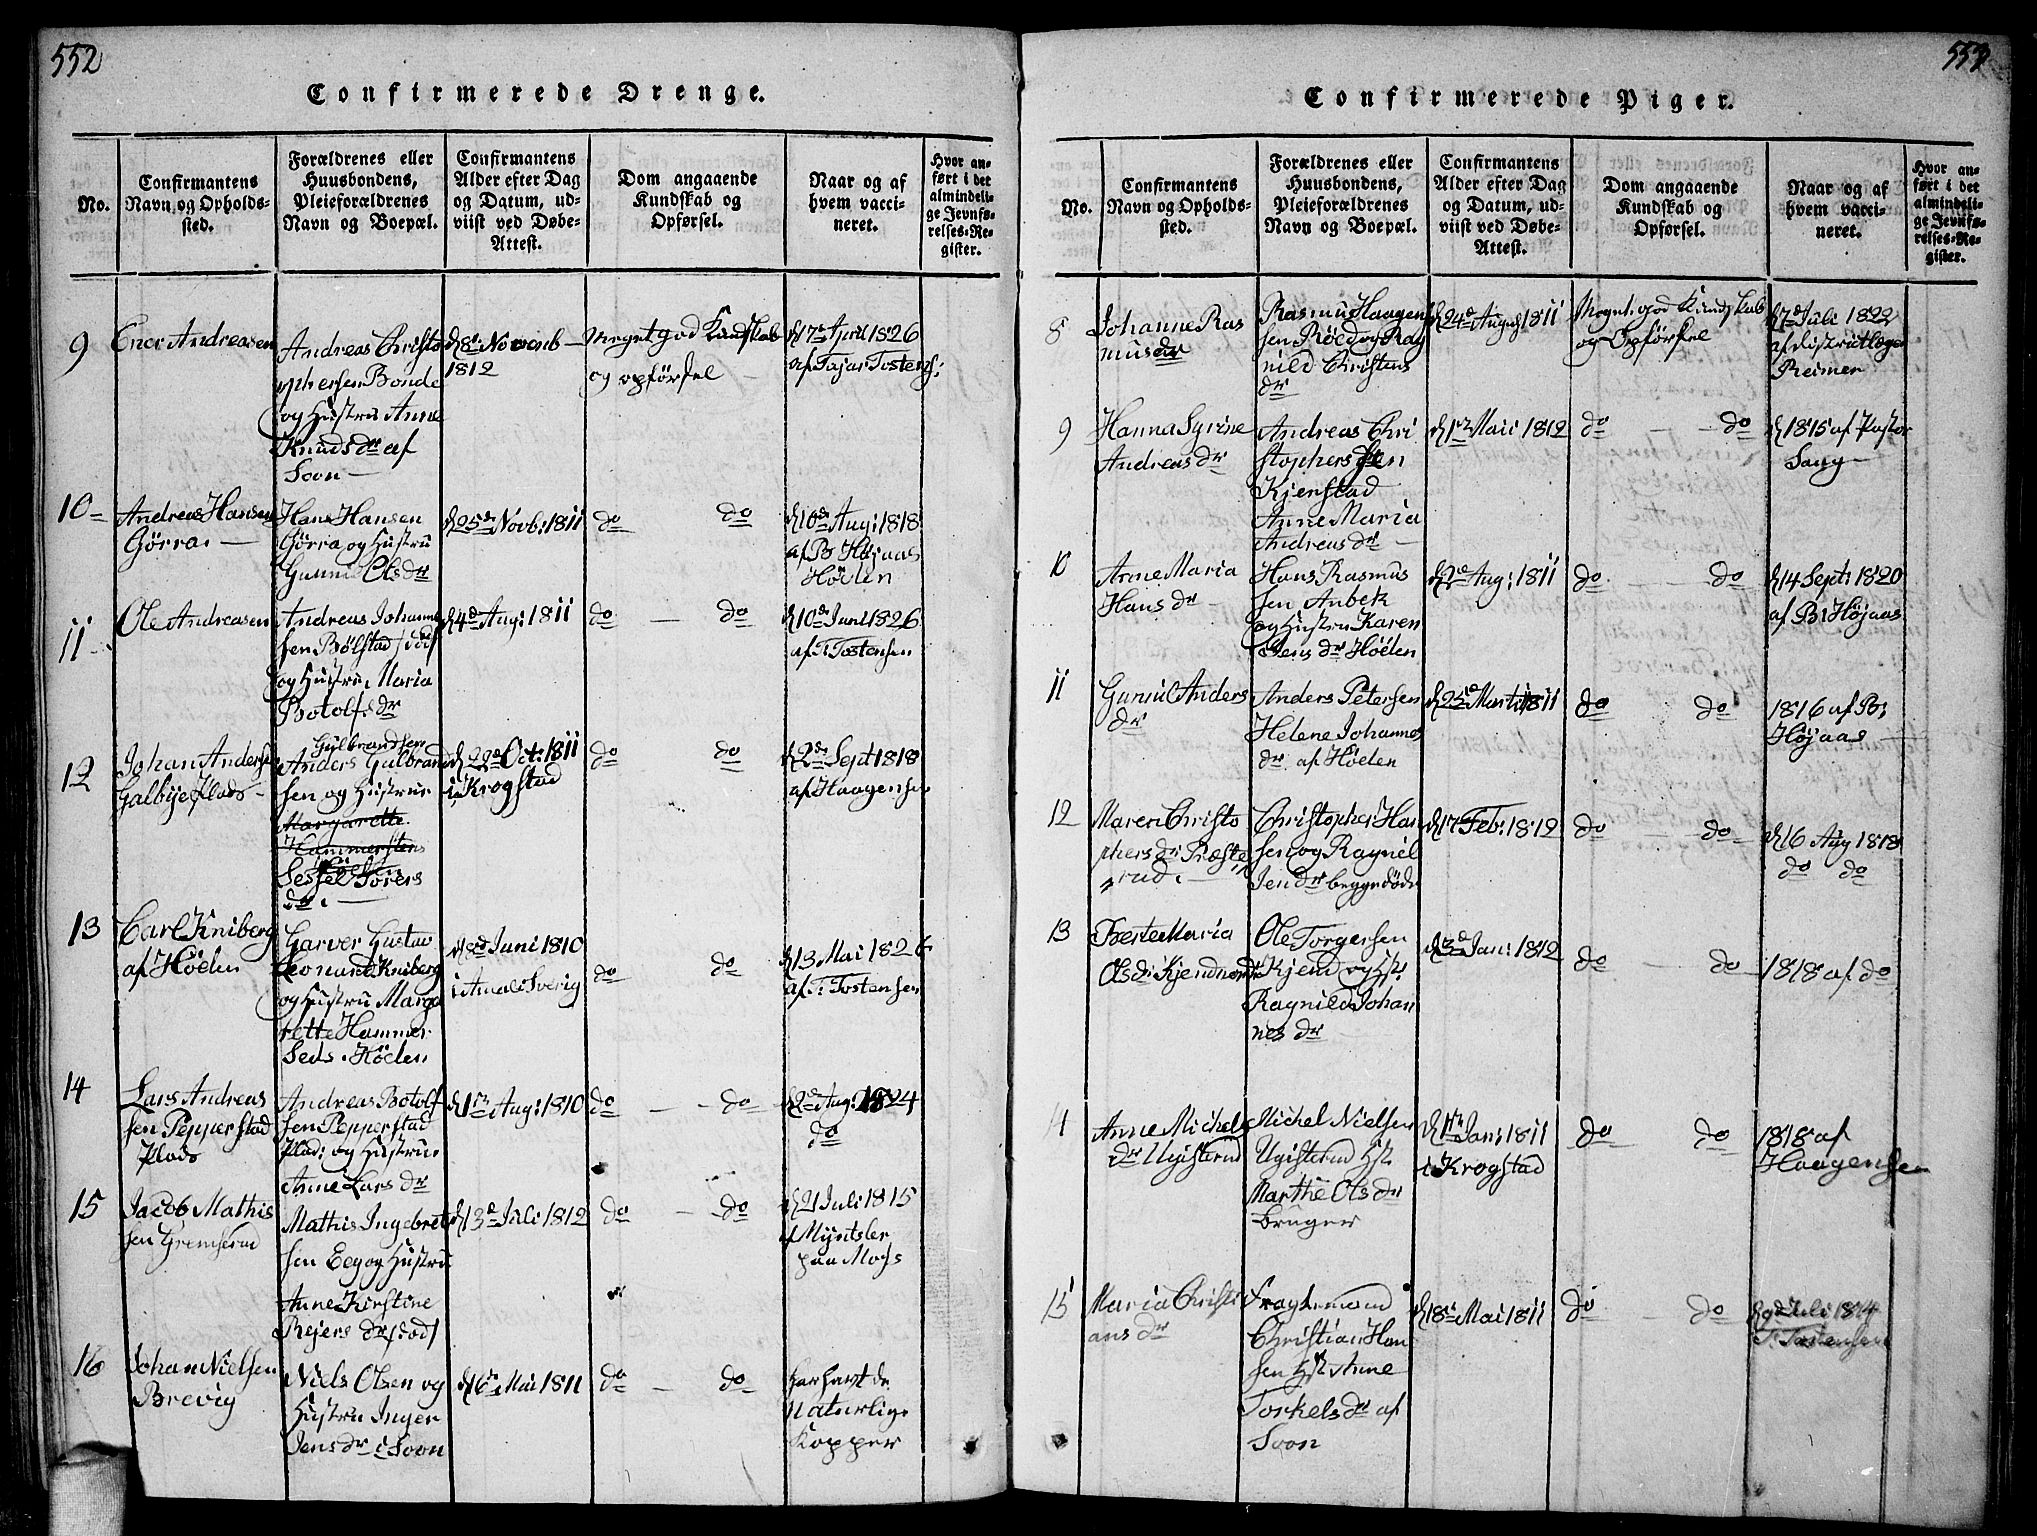 552
Confirmerede Drenge.
No.
Confirmantens
Navn og Opholds-
sted.
Forældrenes eller
Huusbondens,
Pleieforældrenes
Navn og Boepæl.
Confirmantens
Alder efter Dag
og Datum, ud-
viist ved Døbe-
Attest.
Dom angaaende
Kundskab og
Opførsel.
Naar og af
hvem vacci-
neret.
Hvor an-
ført i det
almindeli-
ge Jevnfø-
relses-Re-
gister.
9
Ener Andreasen
Andreas Christo
phersen Bonde
og Hustru Anne
Knudsdr af
Soon
d 8de Novemb
1812
Meget god Kundskab
og opførsel
d 17de April 1826
af Tostens:
10
Andreas Hansen
Görra.
Hans Hansen
Görra og Hustru
Gunnil Olsdr
d 25de Novb: 1811
do do
d 16de Aug: 1818
af B Højaas
Höelen
11
Ole Andreasen
Andreas Johanne
sen Bölstad / död
og Hustru Maria
Botolfsdr
d 4de Aug: 1811
do do
d 10de Juni 1826
af T: Tostensen
12
Johan Anderse
Galbye Plads
Gulbrandsen
Anders Gulbrand
sen og Hustrue
Margarette
Hammersten
Sessel Torers
dr.
d 22de Oct: 1811
i Krogstad
do do
d 2de Sept 1818
af Haagensen
13
Carl Kniberg
af Höelen
Garver Gustav
Leonard Kniberg
og Hustru Marga
rette Hammer
Seds. Höelen
d 8de Juni 1810
i Amal Sverig
do do
d 13 Mai 1826
af T: Tostensen
14
Lars Andreas
sen Pepperstad
Plads
Andreas Botolf
sen Pepperstad
Plads og Hustrue
Anne Lars dr
d 1ste Aug: 1810
do do
d 2de Aug: 1824
do
15
Jacob Mathis
sen Gremserud
Mathis Ingebret
sen Eeg og Hustru
Anne Kirstine
Rejers dr / död /
d 13de Juli 1812
do do
d 21 Juli 1815
af Myntsler
paa Moss
16
Johan Nielsen
Brevig
Niels Olsen og
Hustru Inger
Jens dr i Soon
d 16de Mai 1811
do do
har havt de
Naturlige
Kopper
553
Confirmerede Piger.
No.
Confirmantens
Navn og Opholds-
sted.
Forældrenes eller
Huusbondens,
Pleieforældrenes
Navn og Boepæl.
Confirmantens
Alder efter Dag
og Datum, ud-
viist ved Døbe-
Attest.
Dom angaaende
Kundskab og
Opførsel.
Naar og af
hvem vacci-
neret.
Hvor an-
ført i det
almindeli-
ge Jevnfø-
relses-Re-
gister.
8
Johanne Ras
musdr
Rasmus Haagen
sen Röed og Rag
nild Christens
dr
d 24de August 1811
Meget god Kundskab
og Opförsel
d 7de Juli 1822
af Districtlæge
Reimer
9
Hanna Syrine
Andreas dr
Andreas Chri
stophersen
Kjenstad
Anne Maria
Andreas dr
d 1ste Mai 1812
do do
d 1815 af Pastor
Sang
10
Anne Maria
Hans dr
Hans Rasmus
sen Anbek
og Hustru Karen
Jens dr Höelen
d 2de Aug: 1811
do do
d 14 Sept: 1820
af B: Højaas
11
Gunnil Anders
dr
Anders Petersen
Helene Johannes
dr af Höelen
d 25de Marti 1811
do do
1816 af B:
Højaas
12
Maren Christo
phers dr Præste
rud.
Christopher Han
sen og Ragnil
Jens dr begge döde
d 17 Feb: 1812
do do
d 16 Aug 1818
do do
13
Berte Maria
Ols dr Kjend
Ole Torgersen
Kjend og Hst
Ragnild Johan
nes dr
d 3de Jan: 1812
do do
1818 af do
14
Anne Michels
dr Ugisterud
Michel Nielsen
Ugisterud Hst
Marthe Ols dr
Bruger
d 1ste Jan: 1811
i Krogstad
do do
1818 af
Haagensen
15
Maria Christi
ans dr
Fragtemand
Christian Han
sen Hst Anne
Torkels dr af
Soon
d 18de Mai 1811
do do
d 9de Juli 1814
T: Tostensen